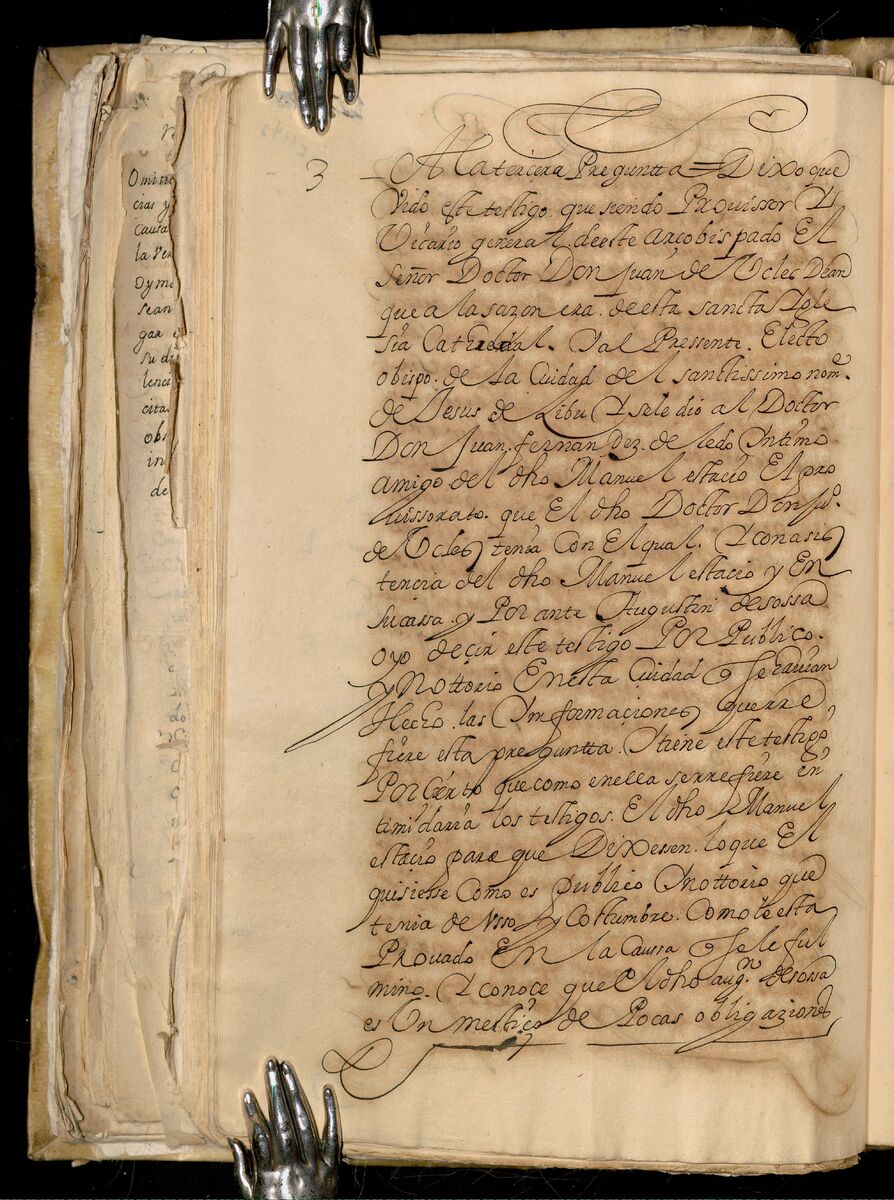 3
A la tercera Preguntta = Dixo que
Vido este testigo. que siendo Prouissor Y
Vicario general. deeste arcobispado El
Señor Doctor Don Juan de Ucles Dean
que a la sazon era. de esta sancta Igle
sia Cathedral. Y al Pressente. Electo
obispo. de La Ciudad del santissimo nome.
de Jesus de Zibu Y se le dio al Doctor
Don Juan. fernandez. de ledo Yntimo
amigo del dho Manuel estacio El pro
uissorato. que El dho Doctor Don Juo.
de Ucles tenia Con El qual. Y con asis
tencia del dho Manuel estacio y En
su cassa. y Por ante Augustin de sossa
oyo deçir este testigo Por Publico.
y Nottorio En esta Ciudad q se hauian
Hecho. las Ynformaciones que rre
fiere esta preguntta. Y tiene este testigo
Por Cierto que como en ella se rrefiere in
timidaria los testigos. El dho Manuel
estacio para que Dixessen. lo que El
quisiesse Como es publico Y nottorio que
tenia de Vsso y Costumbre. Como le esta
Prouado En la Caussa q se le ful
mino. Y conoce que el dho augn. de sossa
es Un mestiço de Pocas obligaziones
Omitie
cias y
Causa
la Ver
Dyme
sean
gar
su di
lenci
cita
obs
in
de